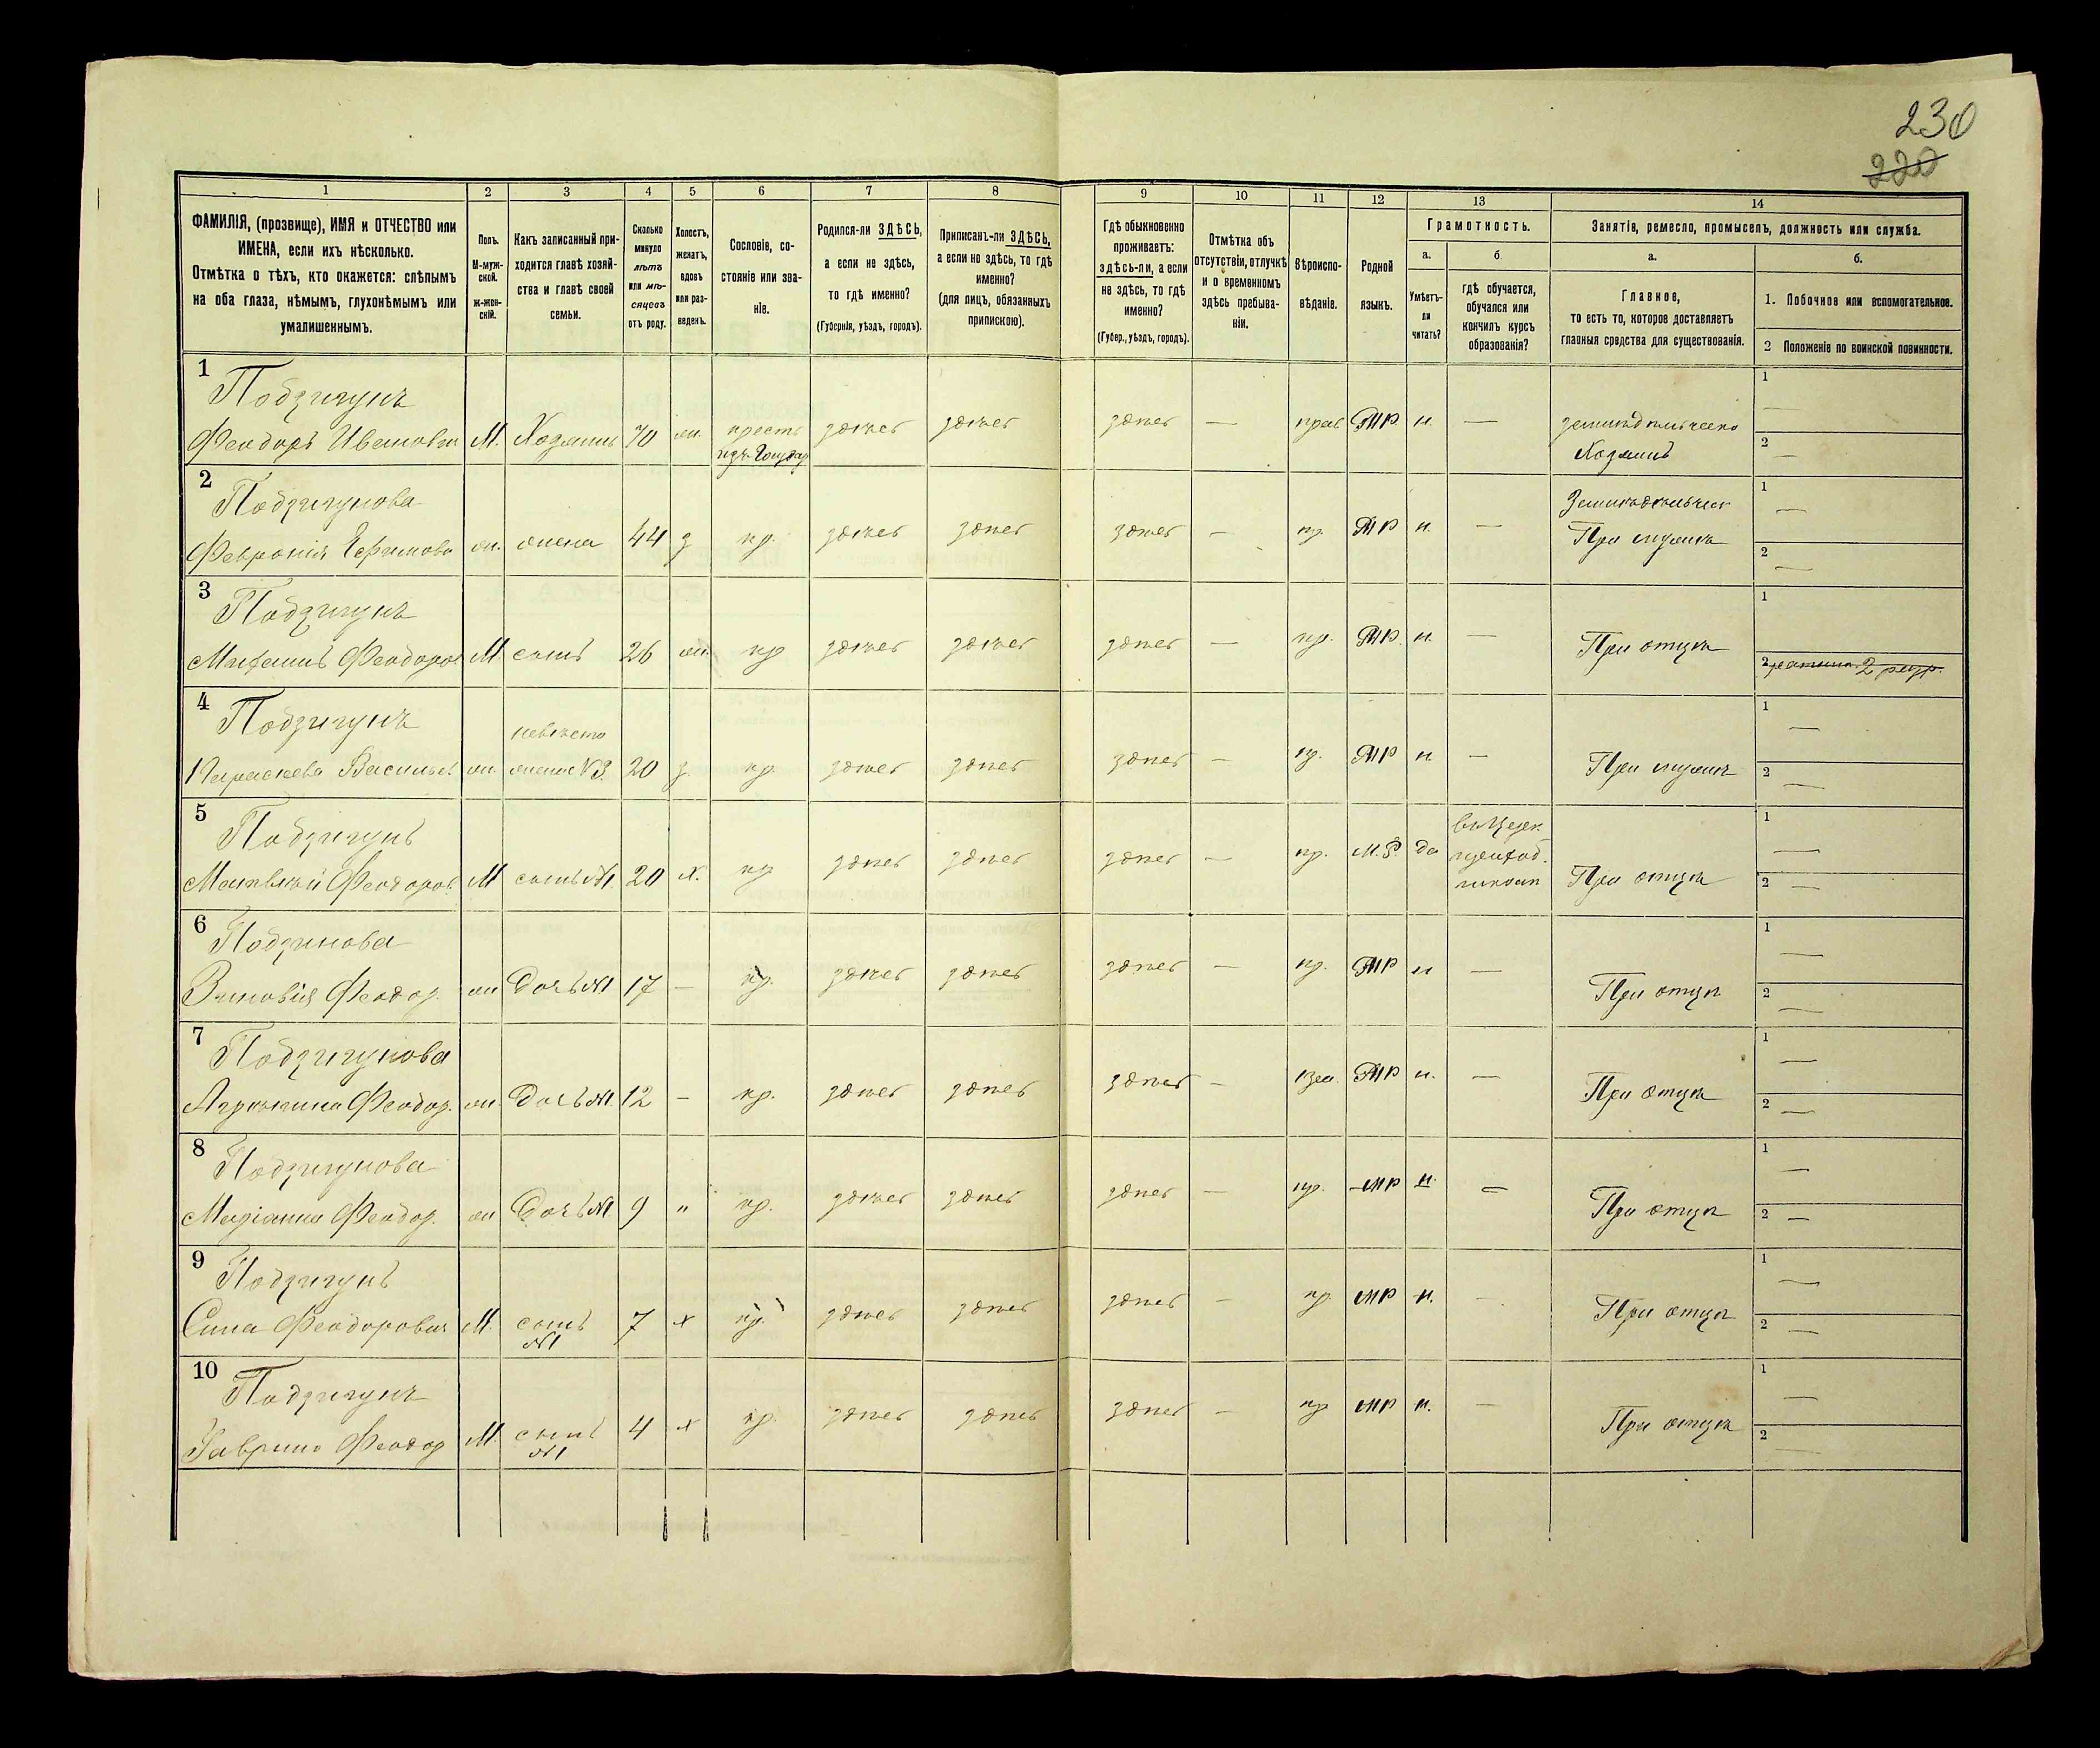 230
220
1 2 3 4 5 6 7 8 9 10 11 12 13 14
ФАМИЛІЯ, (прозвище), ИМЯ и ОТЧЕСТВО или
ИМЕНА, если ихъ нѣсколько.
Отмѣтка о тѣхъ, кто окажется: слѣпымъ
на оба глаза, нѣмымъ, глухонѣмымъ или
умалишеннымъ.
Полъ.
М-муж-
ской.
ж-жен-
скій.
Какъ записанный при-
ходится главѣ хозяй-
ства и главѣ своей
семьи.
Сколько
минуло
лѣтъ
или мѣ-
сяцевъ
отъ роду.
Холостъ,
женатъ,
вдовъ
или раз-
веденъ.
Сословіе, со-
стояніе или зва-
ніе.
Родился-ли ЗДѢСЬ,
а если не здѣсь,
то гдѣ именно?
(Губернія, уѣздъ, городъ).
Приписанъ-ли ЗДѢСЬ,
а если не здѣсь, то гдѣ
именно?
(для лицъ, обязанныхъ
припискою).
Гдѣ обыкновенно
проживаетъ:
здѣсь-ли, а если
не здѣсь, то гдѣ
именно?
(Губер., уѣздъ, городъ).
Отмѣтка объ
отсутствіи, отлучкѣ
и о временномъ
здѣсь пребыва-
ніи.
Вѣроиспо-
вѣданіе.
Родной
языкъ.
Грамотность.
а.
Умѣетъ-
ли
читать?
б
гдѣ обучается,
обучался или
кончилъ курсъ
образованія?
Занятія, ремесло, промыселъ, должность или служба.
а.
Главное,
то есть то, которое доставляетъ
главныя средства для существованія.
б.
1. Побочное или вспомогательное.
2 Положеніе по воинской повинности.
1
Подзигунъ
Феодоръ Ивановъ М. Хозяинъ 70 ж. крестъ здѣсь здѣсь здѣсь — прав МР н. —
Хозяинъ
1 —
2 —
2
Подзигунова
Февронія Ефимова ж. жена 44 з кр. здѣсь здѣсь здѣсь — пр. МР н. —
При мужѣ
1 —
2 —
3
Подзигунъ
Феодоров М. сынъ 26 ж. кр здѣсь здѣсь здѣсь — пр. МР. н. —
При отцѣ
1
2 2 разр.
4
Подзигунъ
невѣста
Параскева Васильев ж жена N 3. 20 з. кр. здѣсь здѣсь здѣсь — пр. МР н —
При мужѣ
1 —
2 —
5
Подзигунъ
Феодоров. М сынъ N1. 20 х. кр здѣсь здѣсь здѣсь — пр. М.Р. да
При отцѣ
1 —
2 —
6
Подзинова
Зиновія Феодор. ж Дочь N1 17 — кр. здѣсь здѣсь здѣсь — пр. МР н —
При отцѣ
1 —
2 —
7
Подзигунова
Феодор. ж. Дочь N1. 12 — кр. здѣсь здѣсь здѣсь — МР н. —
При отцѣ
1 —
2 —
8
Подзигунова
Маріанна Феодор. ж Дочь N1. 9 " кр. здѣсь здѣсь здѣсь — пр. МР н. —
При отцѣ
1 —
2 —
9
Подзигунъ
Сила Феодорович М. сынъ 7 х кр. здѣсь здѣсь здѣсь — пр МР н. —
N1
При отцѣ
1 —
2 —
10
Подзигунъ
Гавриил Феодор М. сынъ 4 х кр. здѣсь здѣсь здѣсь — пр МР н. —
N1
При отцѣ
1 —
2 —